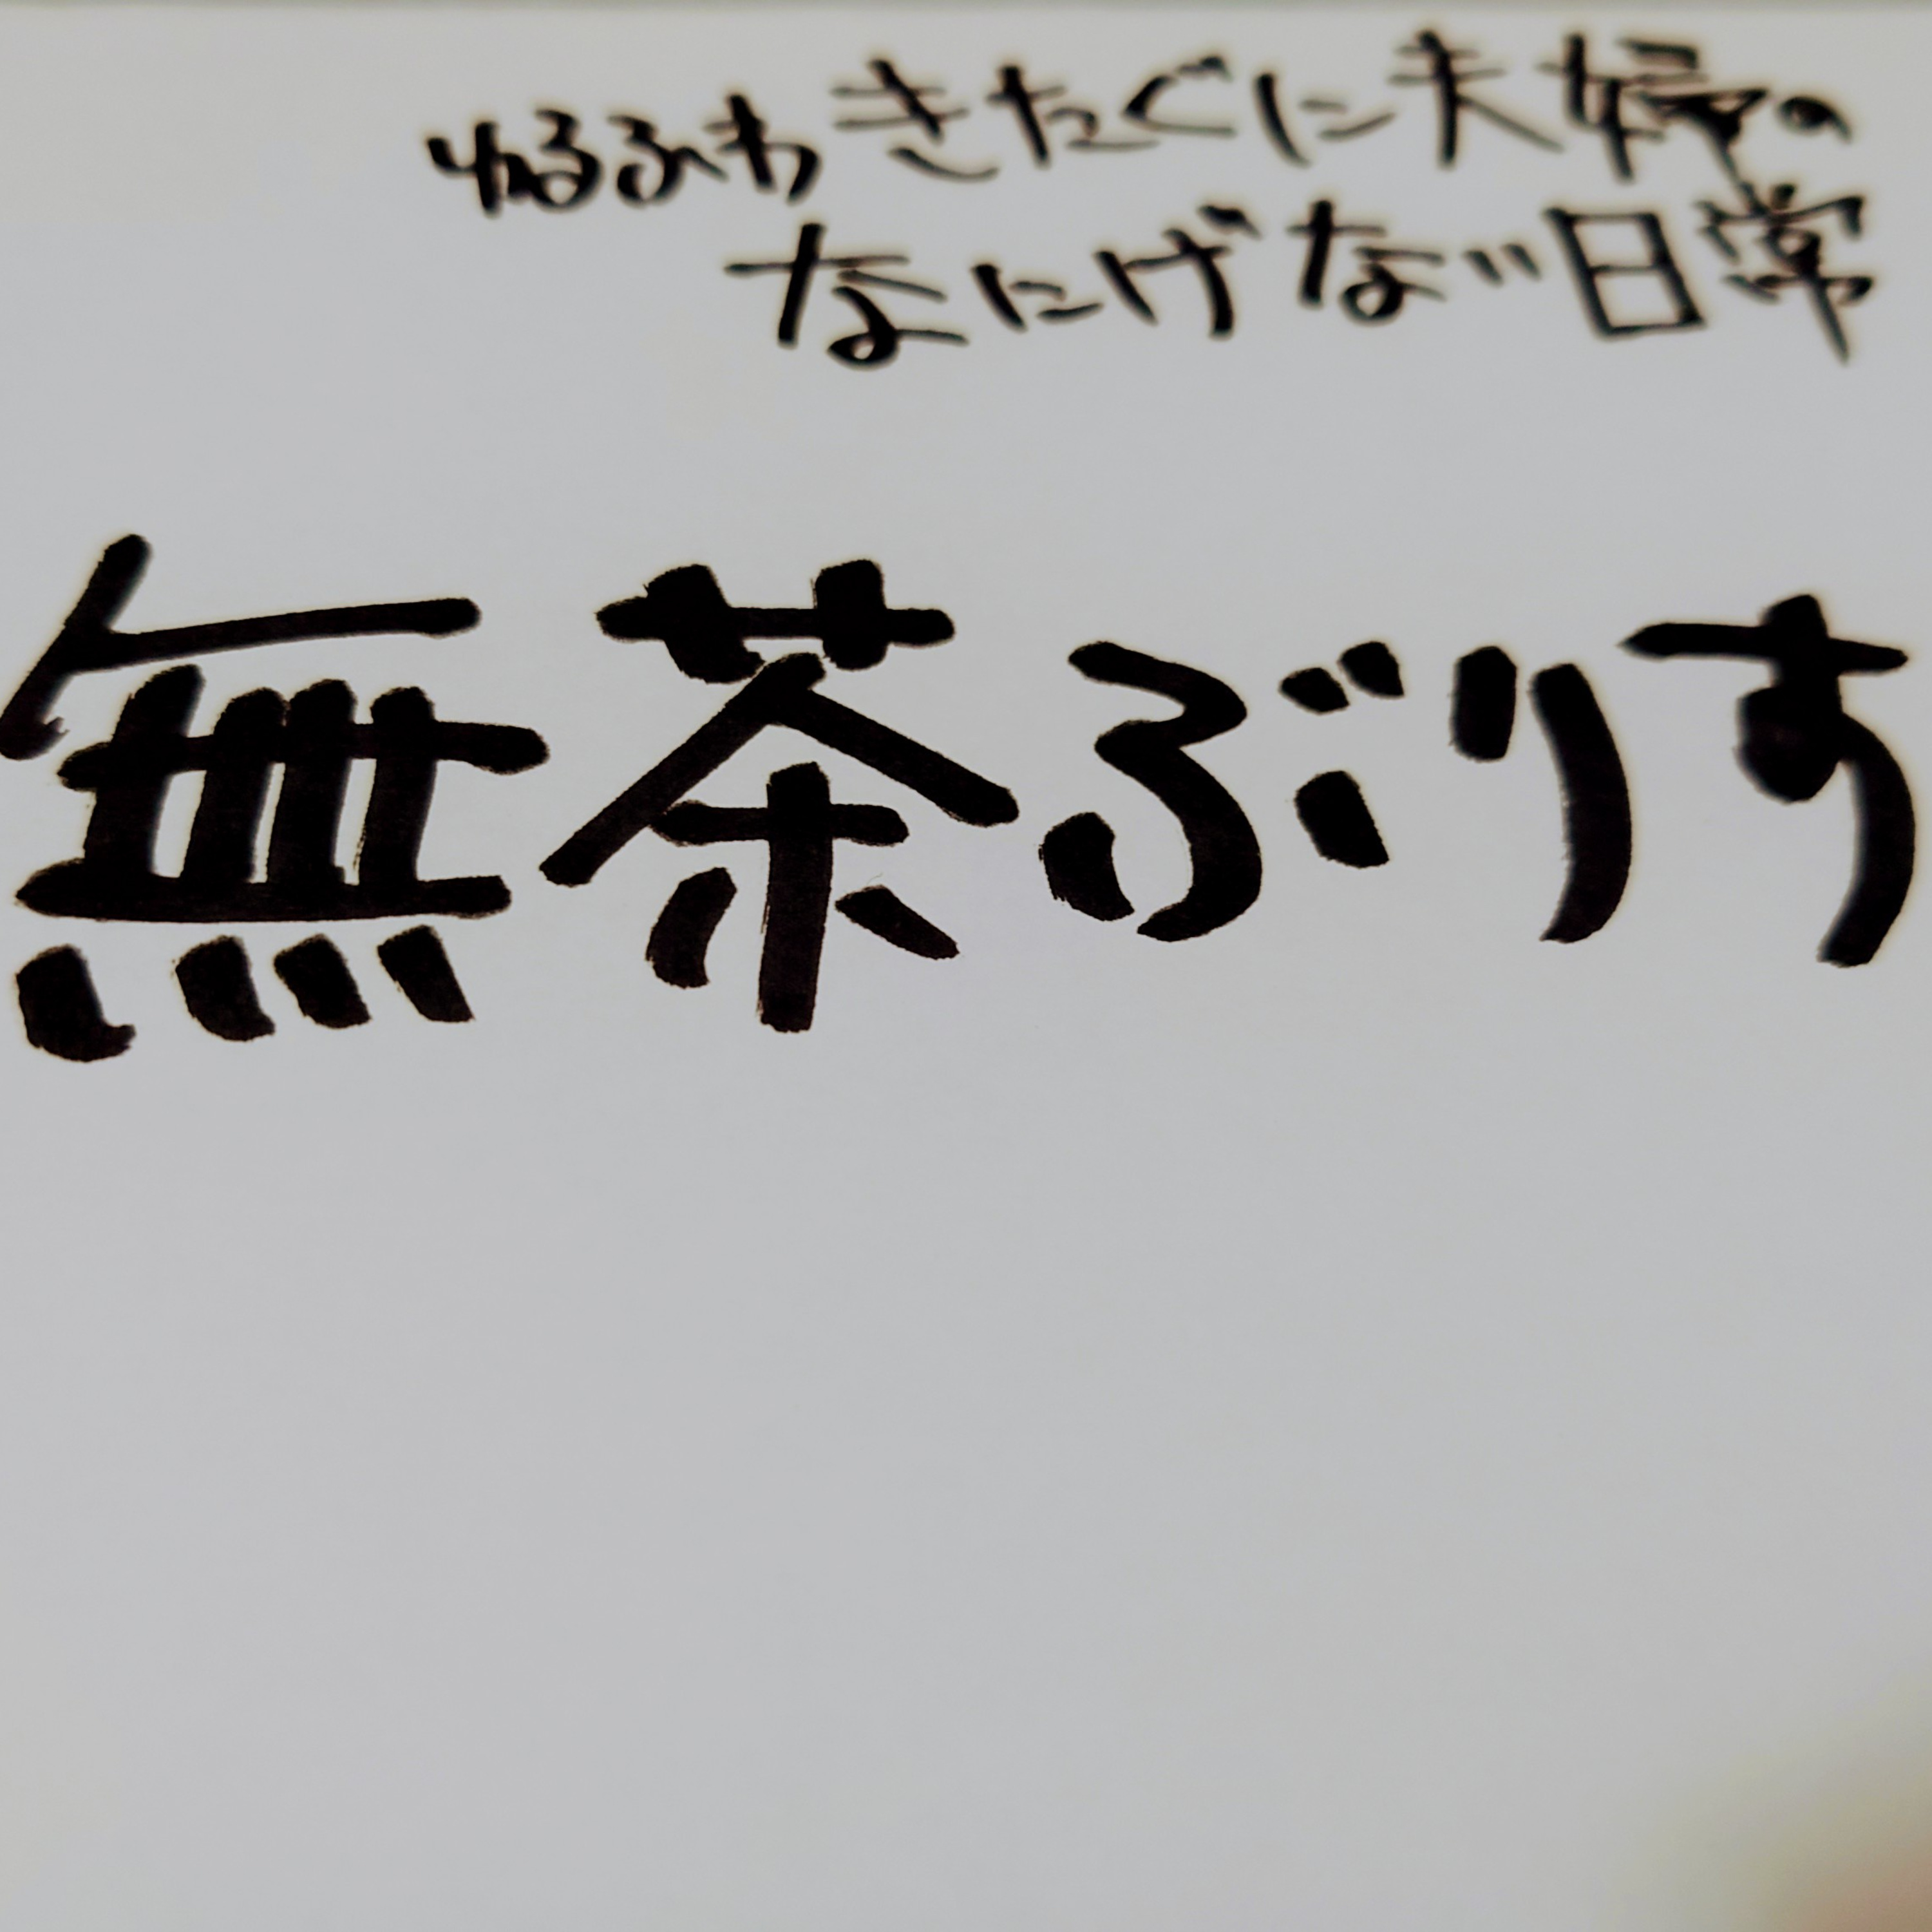 ゆるふわきたぐに夫婦の
なにげない日常
無茶ぶりす